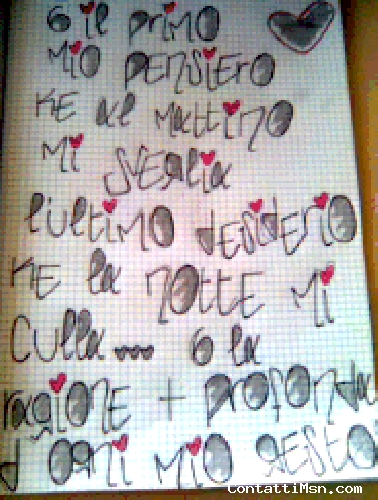 6 il primo
mio pensiero
ke al mattino
mi sveglia
l'ultimo desiderio
ke la notte mi
culla 6 la
ragione + profonda
d'ogni mio gesto
ContattiMsn.com